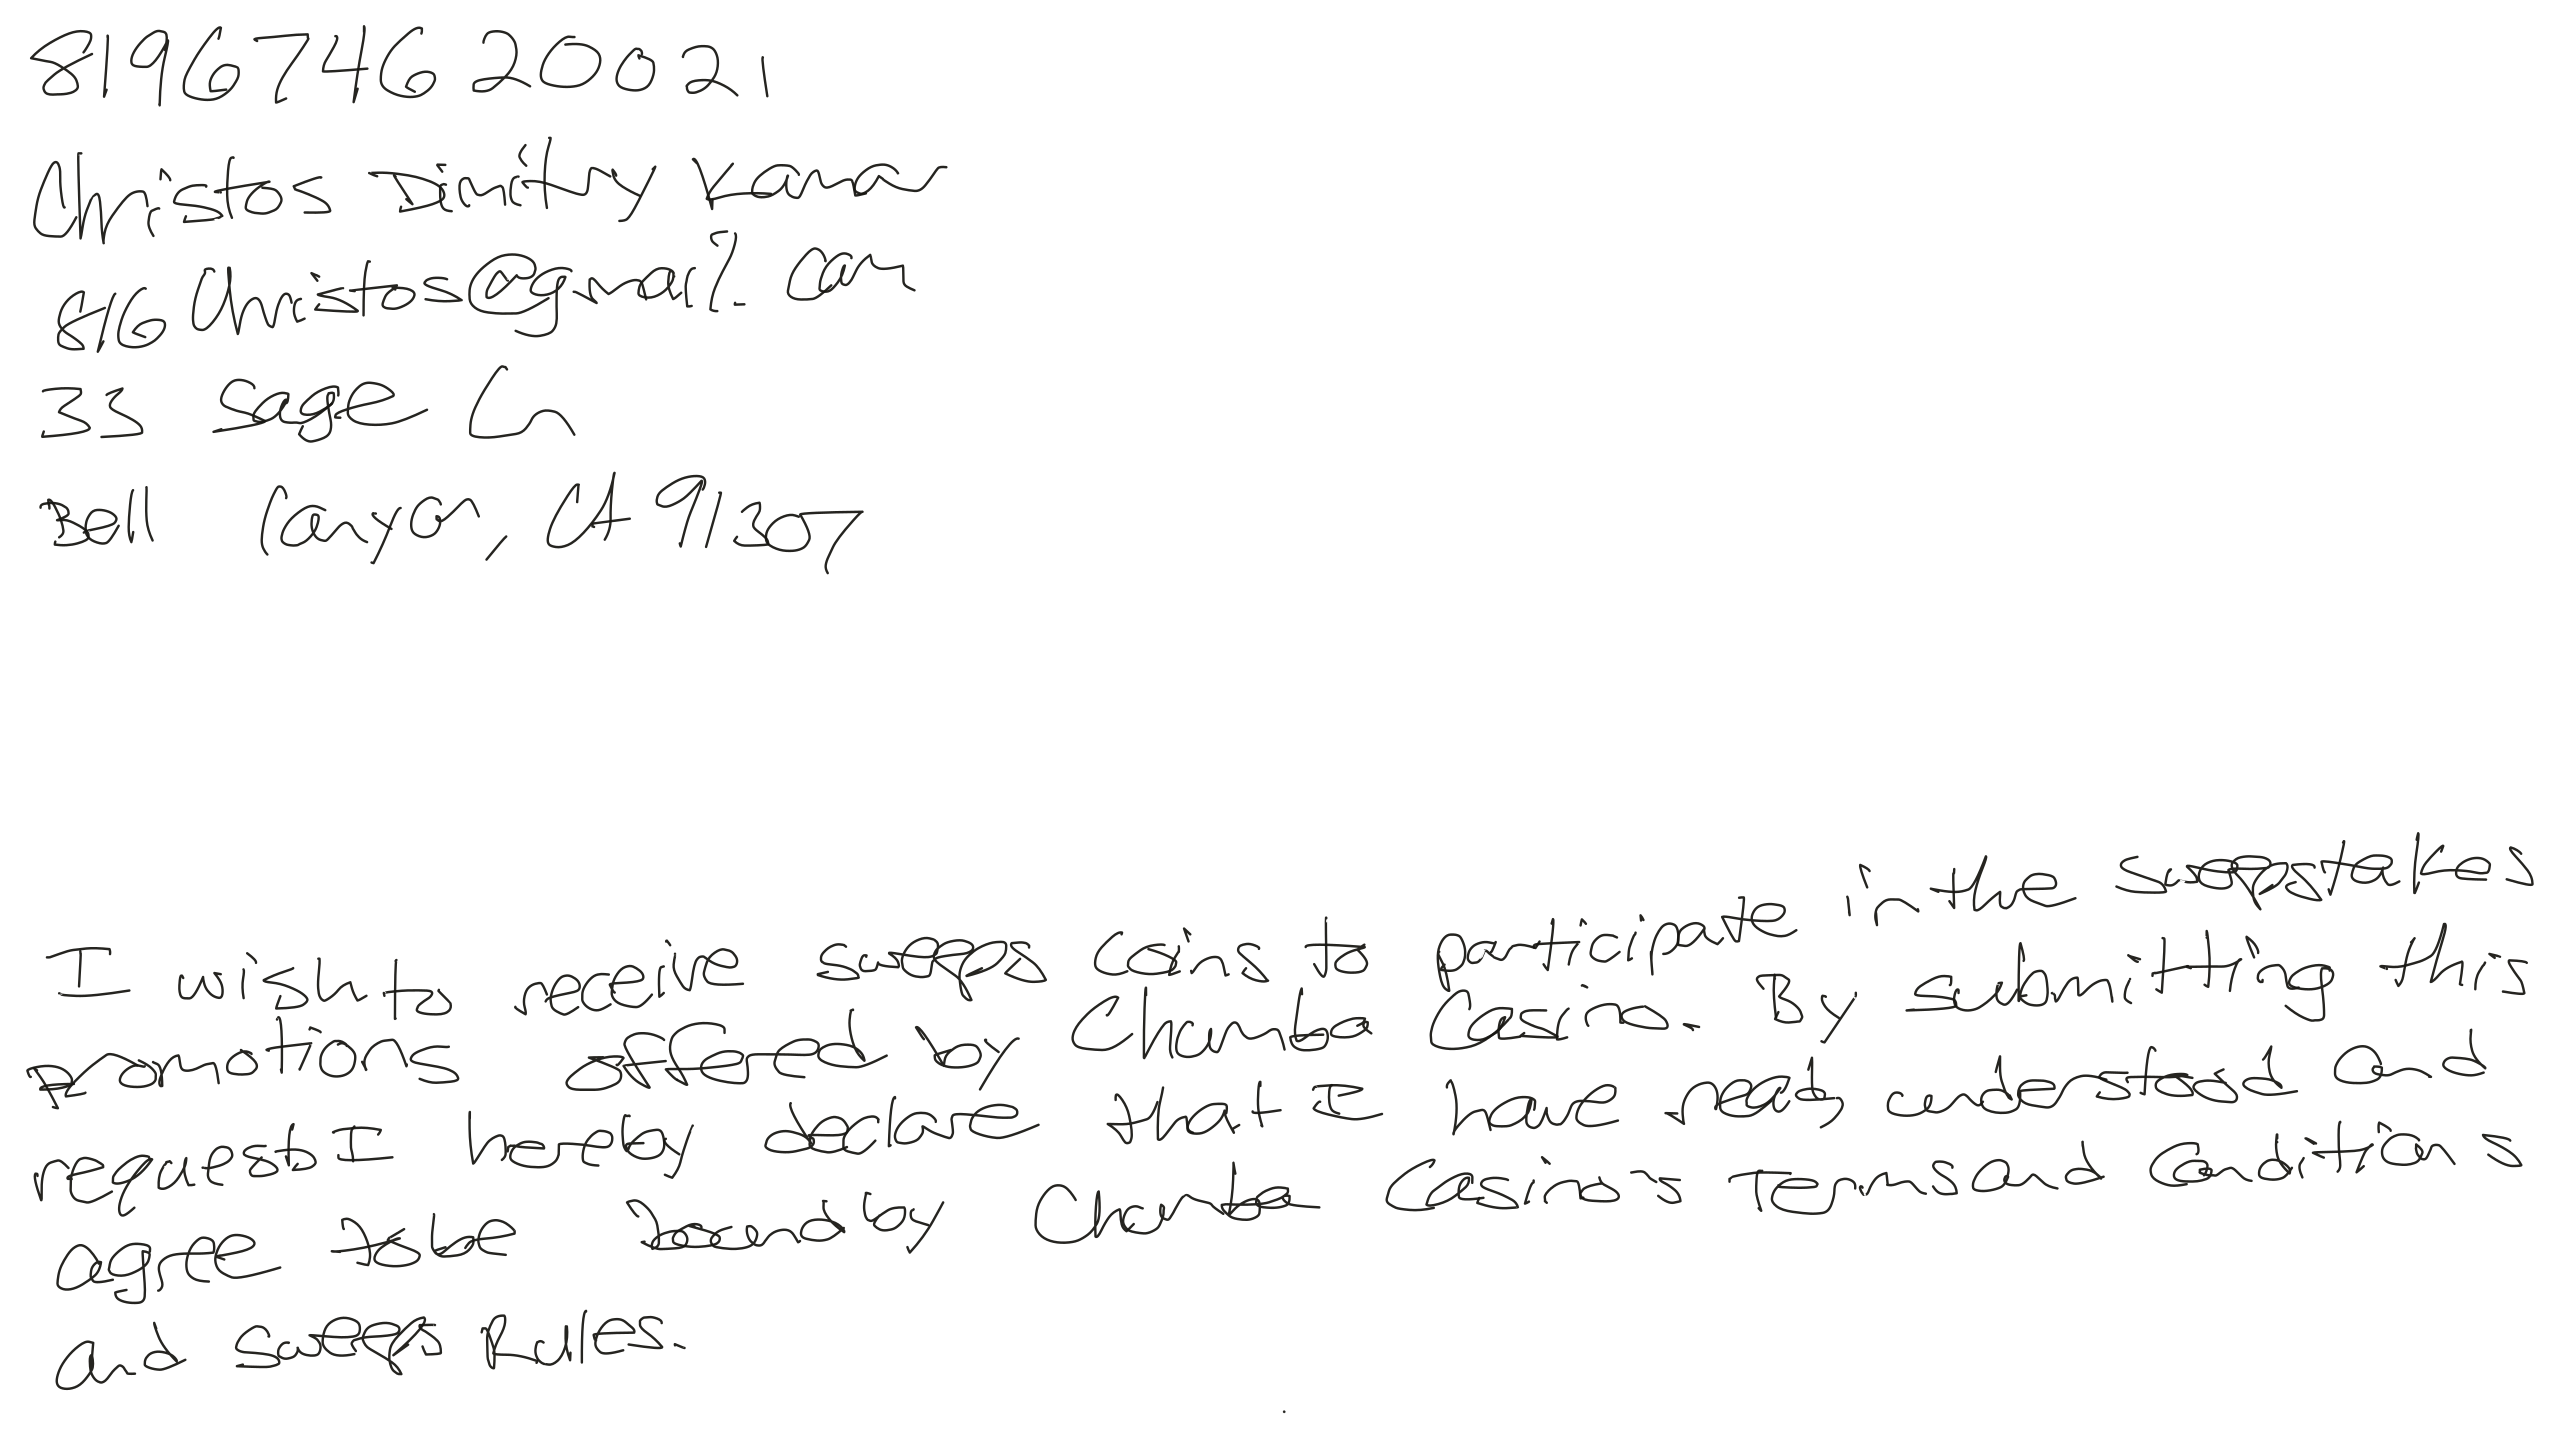 819674620021
Christos Dimitry Kamar
816Christos@gmail.com
33 Sage Ln
Bell Canyon, CA 91307
I wish to receive sweeps coins to participate in the sweepstakes
promotions offered by Chumba Casino. By submitting this
request, I hereby declare that I have read, understood and
agree to be bound by Chumba Casino's Terms and Conditions
and Sweeps Rules.